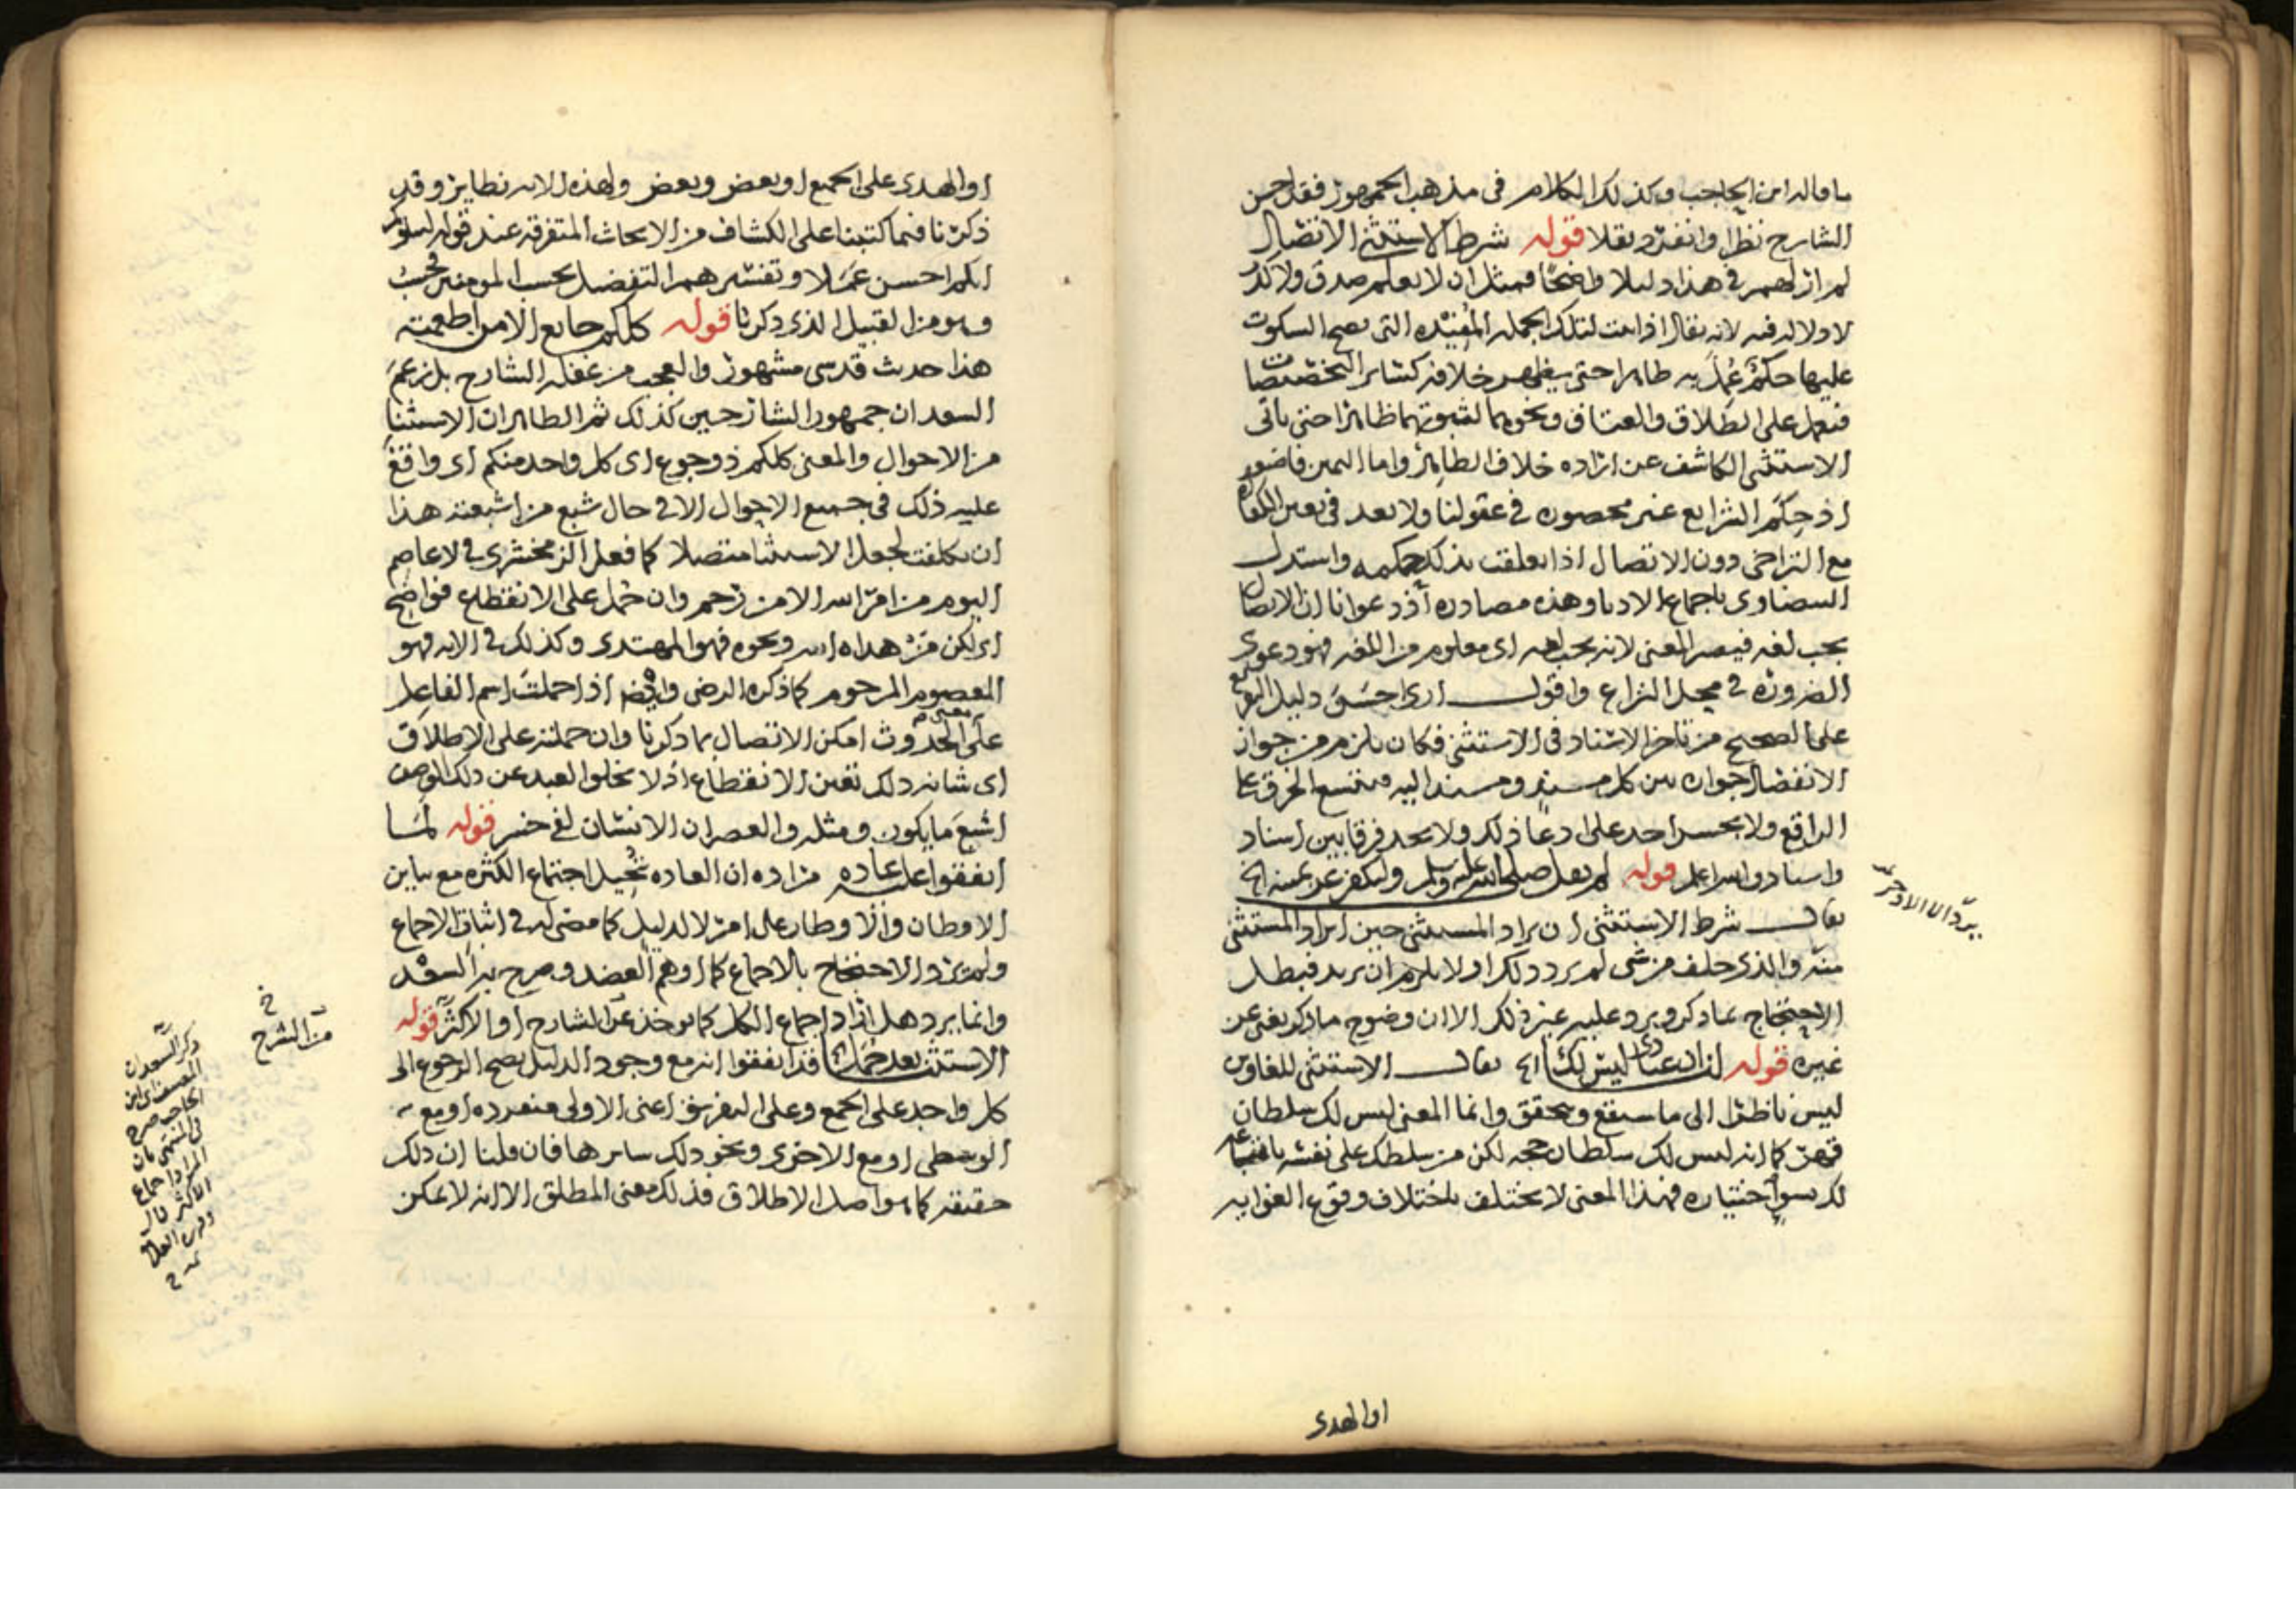 ما قاله ابن الحاجب وكذلك الكلام في مذهب الجمهور فقد احسن
الشارح نظرا وانفرد نقلا قوله شرط الاستثنى الاتصال
لم ار لهم في هذا دليلا واضحا فمثل ان لا يعلم صدق ولا كذب
لا دلالة فيه لانه يقال اذا تمت لتلك الجملة المفيدة التي يصح السكوت
عليها حكم عمل به ظاهرا حتى يظهر خلافه كسائر التخصيصات
فيعمل على الطلاق والعتاق ونحوهما لثبوتهما ظاهرا حتى ياتى
الاستثنى الكاشف عن اراده خلاف الظاهر واما اليمين فاضعف
اذ حكم الشرايع غير محصوره في عقولنا ولا بعد في تعين الكفاره
مع التراخى دون الاتصال اذا تعلقت بذلك حكمه واستدل
البيضاوى باجماع الادبا وهذه مصادره اذ دعوانا ان الاتصال
يجب لغه فيصير المعنى لانه يجب لغه اى معلوم من اللغه فهو دعوى
الضروره في محل النزاع واقول ارى احسن دليل
على الصحيح من تاخر الاسناد في الاستثنى فكان يلزم من جواز
الانفصال جوازه بين كل مسند ومسند اليه فيتسع الخرق على
الراقع ولا يجسر احد على ادعا ذلك ولا يجد فرقا بين اسناد
واسناد والله اعلم قوله لم يقل صلى الله عليه وسلم وليكفر عن يمينه الخ
يقال شرط الاستثنى ان يراد المستثنى حين ايراد المستثنى
منه والذى حلف من شى لم يرد ذلك اولا يلزم ان يريد فبطل
الاحتجاج بما ذكر ويرد عليه غير ذلك الا ان وضوح ما ذكر يغنى عن
غيره قوله ان عبادى ليس لك الخ يقال الاستثنى للغاوين
ليس ناظرا الى ما سيقع ويتحقق وانما المعنى ليس لك سلطان
قهر كما انه ليس لك سلطان حجه لكن من سلطك على نفسه باتباعه
لك بسوء اختياره فهذا المعنى لا يختلف باختلاف وقوع الغوايه
او الهدى
او الهدى على الجميع او بعض وبعض ولهذه الايه نظاير وقد
ذكرنا فيما كتبنا على الكشاف من الابحاث المتفرقه عند قوله ليبلوكم
ايكم احسن عملا وتفسيرهم التفضيل بحسب المومنين فحسب
وهو من القبيل الذى ذكرنا قوله كلكم جايع الا من اطعمته
هذا حديث قدسى مشهور والعجب من غفلة الشارح بل زعم
السعد ان جمهور الشارحين كذلك ثم الظاهر ان الاستثنا
من الاحوال والمعنى كلكم ذو جوع اى كل واحد منكم اى واقع
عليه ذلك في جميع الاحوال الا في حال شبع من اشبعته هذا
ان تكلفت لجعل الاستثنا متصلا كما فعل الزمخشرى في لا عاصم
اليوم من امر الله الا من رحم وان حمل على الانقطاع فواضح
اى لكن من هداه الله ونحوه فهو المهتدى وكذلك في الايه فهو
المعصوم المرحوم كما ذكره الرضى وايضا اذا حملت اسم الفاعل
على معنى الحدوث امكن الاتصال بما ذكرنا وان حملته على الاطلاق
اى شانه ذلك تعين الانقطاع اذ لا يخلوا العبد عن ذلك الوصف
اشبع ما يكون ومثله والعصر ان الانسان لفى خسر قوله لما
اتفقوا على عاده مراده ان العاده تحيل اجتماع الكثره مع تباين
الاوطان والاوطار على امر لا لدليل كما مضى له في اثبات الاجماع
ولم يرد الاحتجاج بالاجماع كما اوهم العضد وصرح به السعد
وانما يرد هل اراد اجماع الكل كما يوخذ من الشارح او الاكثر قوله
الاستثنا بعد جمل الخ قد اتفقوا انه مع وجود الدليل يصح الرجوع الى
كل واحد على الجمع وعلى التفريق اعنى الاولى منفرده او مع
الوسطى او مع الاخرى ونحو ذلك سايرها فان قلنا ان ذلك
حقيقه كما هو اصل الاطلاق فذلك معنى المطلق الا انه لا يمكن
من الشرح
ذكر السعد ان
المصنف اى ابن
الحاجب صرح
في المنتهى بان
المراد اجماع
الاكثر قال